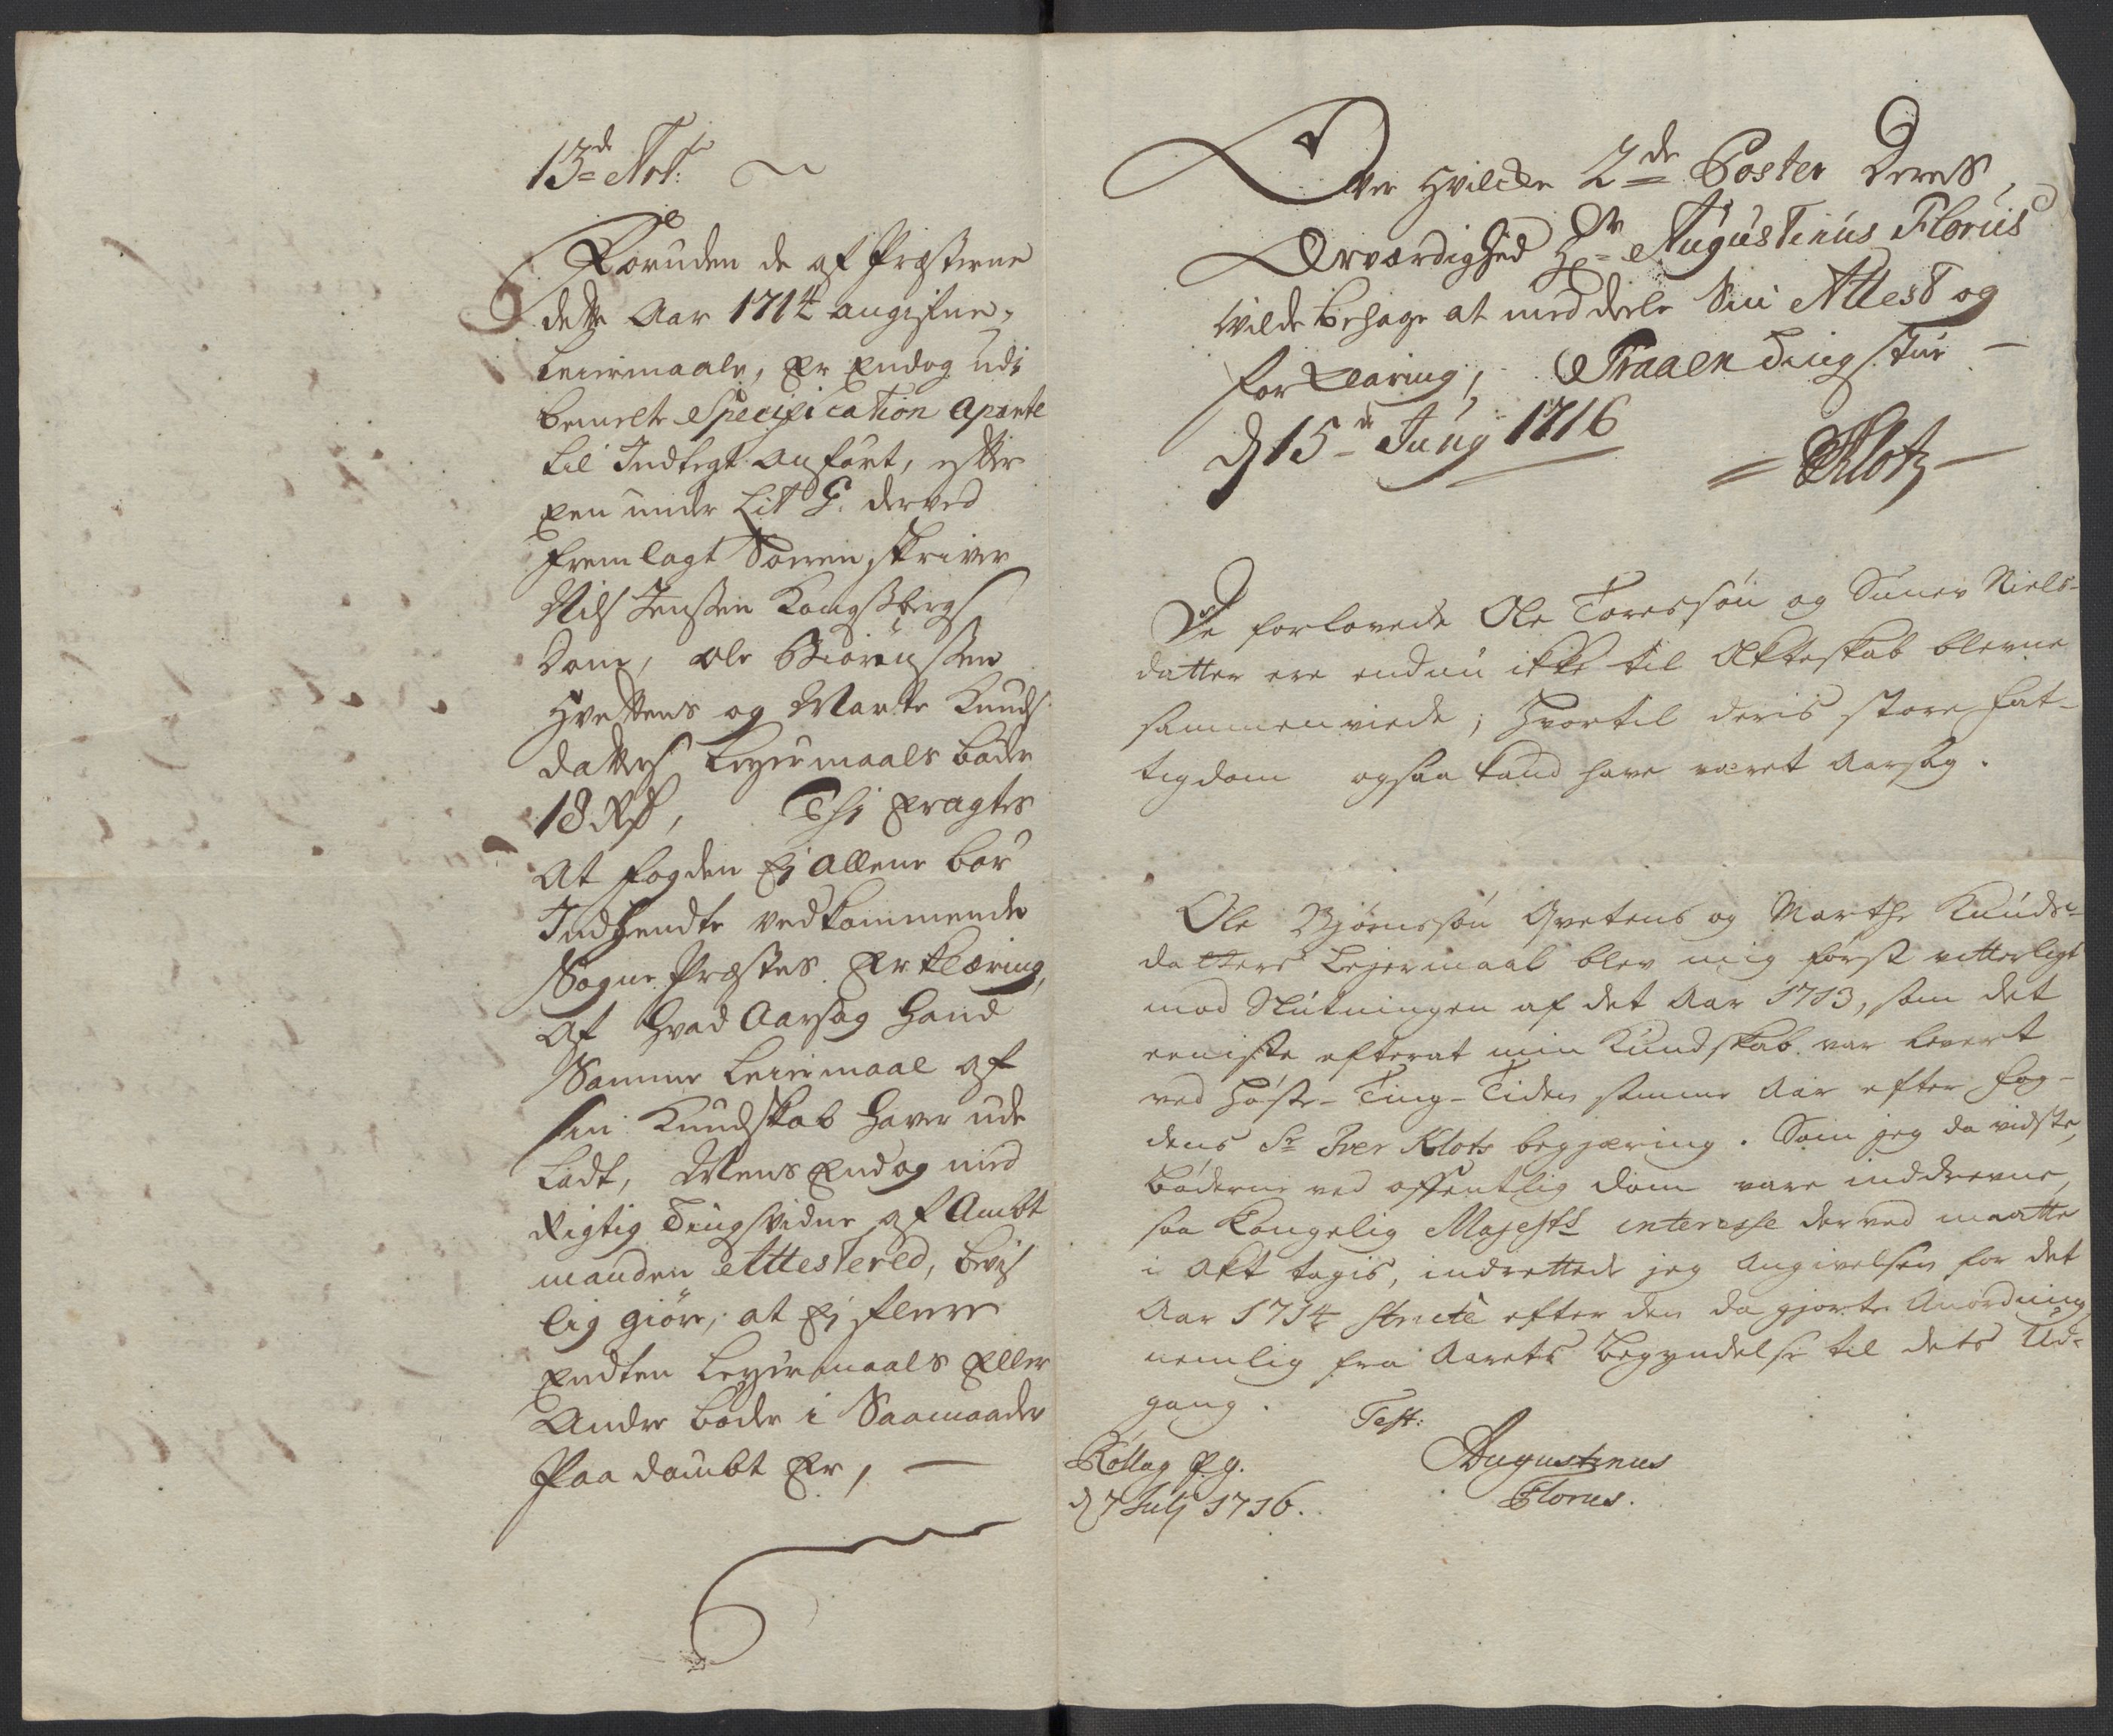 13de Art:
Foruden de af Præsterne
dette Aar 1714 angifne
Leiermaale, er Endog udi
bemelte Specification aparte
til Indtegt Anført, efter
Een under Lit G. derved
fremlagt Sorrenschriver
Nils Jenssen Kongsbergs
Dom, Ole Biørenssen
Hvettens og Marte Knuds
datters Leyermaals bøder
18 Rdr, Thj Eragtes
At fogden Ej Allene bør
Indhendte vedkommende
Sogne Præstes Erklæring,
Af hvad Aarsag hand
Samme Leiermaal af
sin Kundskab haver ude
ladt, Mens Endog med
Rigtig Tingsvidne af Ambt
manden Attestered, bevis
lig giøre, at Ej flere
Endten Leyermaals Eller
Andre bøder i Saamaader
Paadømbt Er,
Over hvilche 2de Poster Deres
Ærværdighed Hr Augustinus Florus
wilde behage at meddeele Sin Attest og
forklaring, Traaen Tingstue
d 15de Junj 1716
Klotz
De forlovede Ole Toressøn og Sunev Niels-
datter ere endnu ikke til Ækteskab blevne
sammenviede; hvortil deris store fat-
tigdom ogsaa kand have været Aarsag.
Ole Bjørnssøn Qvetens og Marthe Knuds-
datters Lejermaal blev mig først vitterligt
mod Slutningen af det Aar 1713, som det
eeniste efterat min Kundskab var levert
ved Høste-Ting-Tiden samme Aar efter fog-
dens Sr Iver Klots begjæring. Som jeg da vidste,
bøderne ved offentlig dom vare inddrevne,
saa Kongelig Majests interesse derved maatte
i Akt tagis, indrettede jeg Angivelsen for det
Aar 1714 stricte efter den da gjorte Anordning,
nemlig fra Aarets begyndelse til dets Ud-
gang. Test:
Rollag Pg. Augustinus
d 7 Julj 1716. Florus.